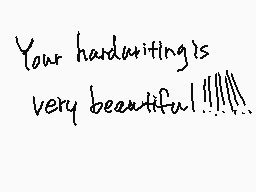 Your handwriting is
very beautiful!!!!!!